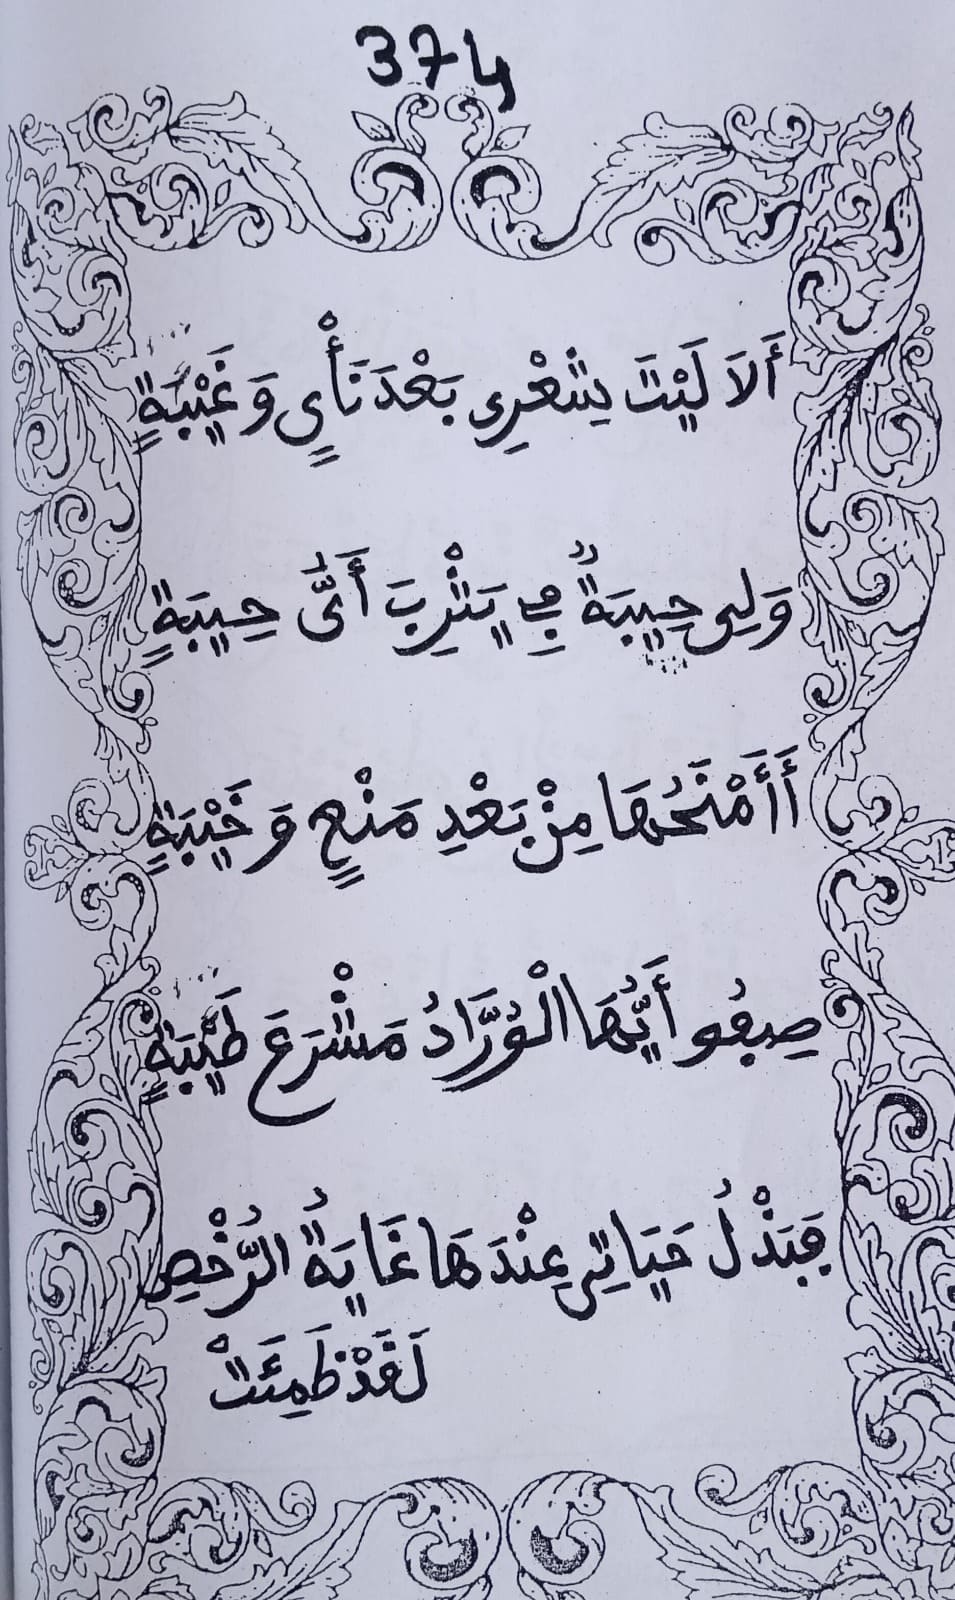 374
أَلاَ لَيْتَ شِعْرِي بَعْدَ نَأْيٍ وَ غَيْبَةٍ
وَلِي حِيبَةٌ فِي يَثْرِبَ أَيَّ حِيبَةٍ
أَأَمْنَحُهَا مِنْ بَعْدِ مَنْعٍ وَ خَيْبَةٍ
صِفُو أَيُّهَا الْوُرَّادُ مَشْرَعَ طَيْبَةٍ
فَبَذْلُ حَيَاتِي عِنْدَهَا غَايَةُ الرُّخْصِ
لَقَدْ ظَمِئَتْ